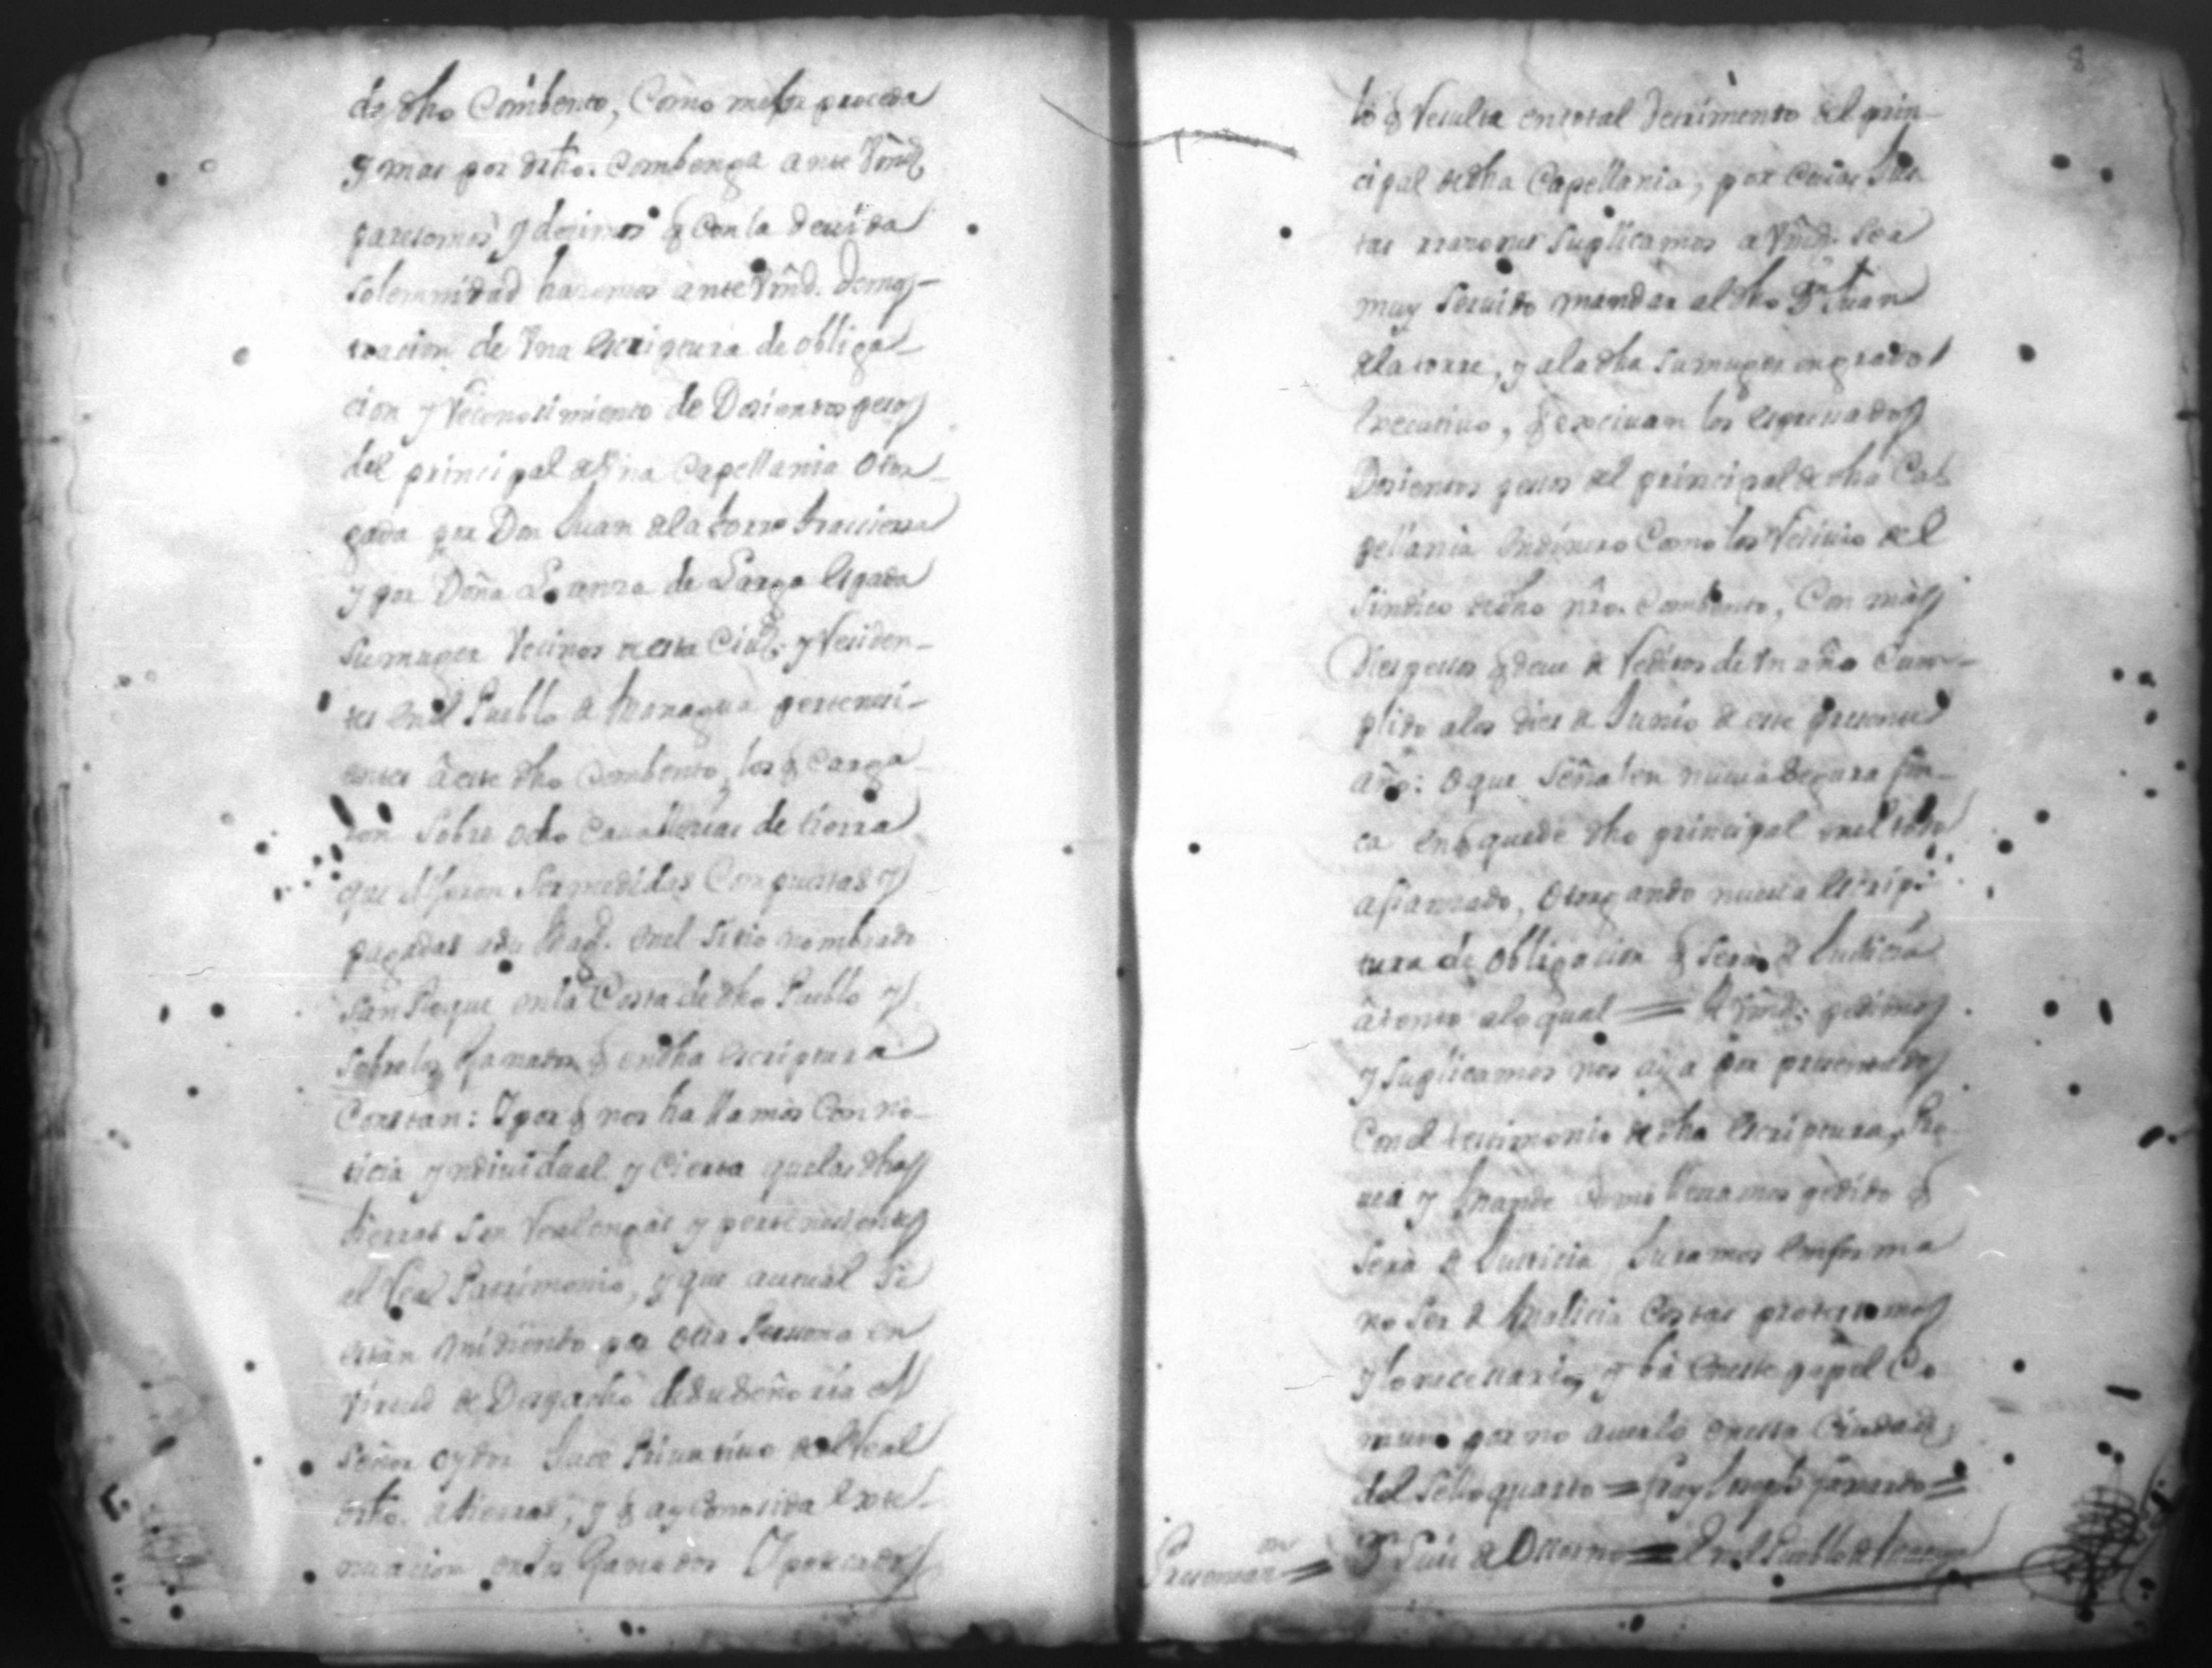 de dho Combento, Como mejor proceda
y mas por drho. Combenga ante Vmd.
paresemos y desimos q con la deuida
solemnidad hasemos ante Vmd. Demos-
tracion de Vna escriptura de obliga-
cion y Reconosimiento de Dosientos pesos
del principal de Vna Capellania otor-
gada por Don Juan de la torre
y por Doña Lorenza de
su muger Vecinos de esta Ciud. y Residen-
tes en el Pueblo de Managua pertenesi-
entes â este dho Combento, los q Carga-
ron sobre ocho Cauallerias de tierra
que dijeron ser medidas Compuestas y
pagadas a su Magd. en el sitio nombrado
San Roque en la Costa de dho Pueblo y
sobre los ganados q en dha escriptura
Constan: Y por q nos hallamos Con no-
ticia yndiuidual y Cierta que las dhas
tierras son Realengas y pertenesientes
al Real Patrimonio, y que actual se
estàn midiendo por otra Persona en
virtud de Despacho de su señoria el
señor oydor Jues Priuatiuo del Real
drho. de tierras, y q ay Conosida exte-
nuacion en los Ganados Ypotecados
8
lo q Resulta en total detrimento del prin-
cipal de dha Capellania, por Cuias Jus-
tas rrazones suplicamos a Vmd. sea
muy seruido mandar al dho Dn Juan
de la torre, y a la dha su muger en grado
executiuo, q exciuan los expresados
Dosientos pesos del principal de dha Ca-
pellania en dinero Como los Resiuio del
sindico de dho nro. Combento, Con mas
Dies pesos q deue de Reditos de vn año Cum-
plido a los dies de Junio de este presente
año: o que señalen nueua segura fin-
ca en q quede dho principal en el todo
afianzado, otorgando nueua escrip-
tura de obligacion q serà de Justicia
âtento a lo qual = A Vmd. pedimos
y suplicamos nos aya por presentados
Con el testimonio de dha escriptura, Pro-
uea y mande Como lleuamos pedido q
serà de Justicia Juramos en forma
no ser de Malicia Costas protestamos
y lo necessario, y và en este papel Co-
mun por no auerlo en esta Ciudad
del sello quarto = fray =
Fr = En el Pueblo de
Presentacion =